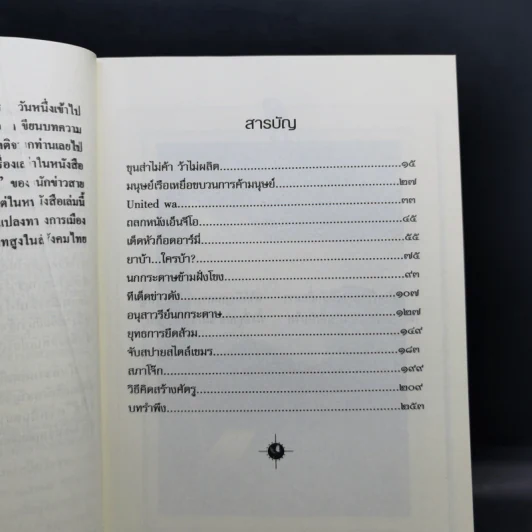 วันหนึ่งเข้าไป
เขียนบทความ
กท่านเลยไป
ในหนังสือ
นักข่าวสาย
งสือเล่มนี้
แปลงทา งการเมือง
ทสูงในสังคมไทย
สารบัญ
ขุนส่าไม่ค้า ว้าไม่ผลิต...............๑๕
มนุษย์เรือเหยื่อขบวนการค้ามนุษย์...............๒๗
United wa...............๓๓
ถลกหนังเอ็นรีโอ...............๔๕
เด็ดหัวก็อดอาร์มี่...............๕๕
ยาบ้า...ใครบ้า?...............๗๕
นกกระดาษข้ามฝั่งโขง...............๙๓
ทีเด็ดข่าวดัง...............๑๐๗
อนุสาวรีย์นกกระดาษ...............๑๒๗
ยุทธการยึดส้วม...............๑๔๙
จับสปายสไตล์เขมร...............๑๘๓
สภาโจ๊ก...............๑๙๙
วิธีคิดสร้างศัตรู...............๒๐๙
บทรำพึง...............๒๕๓